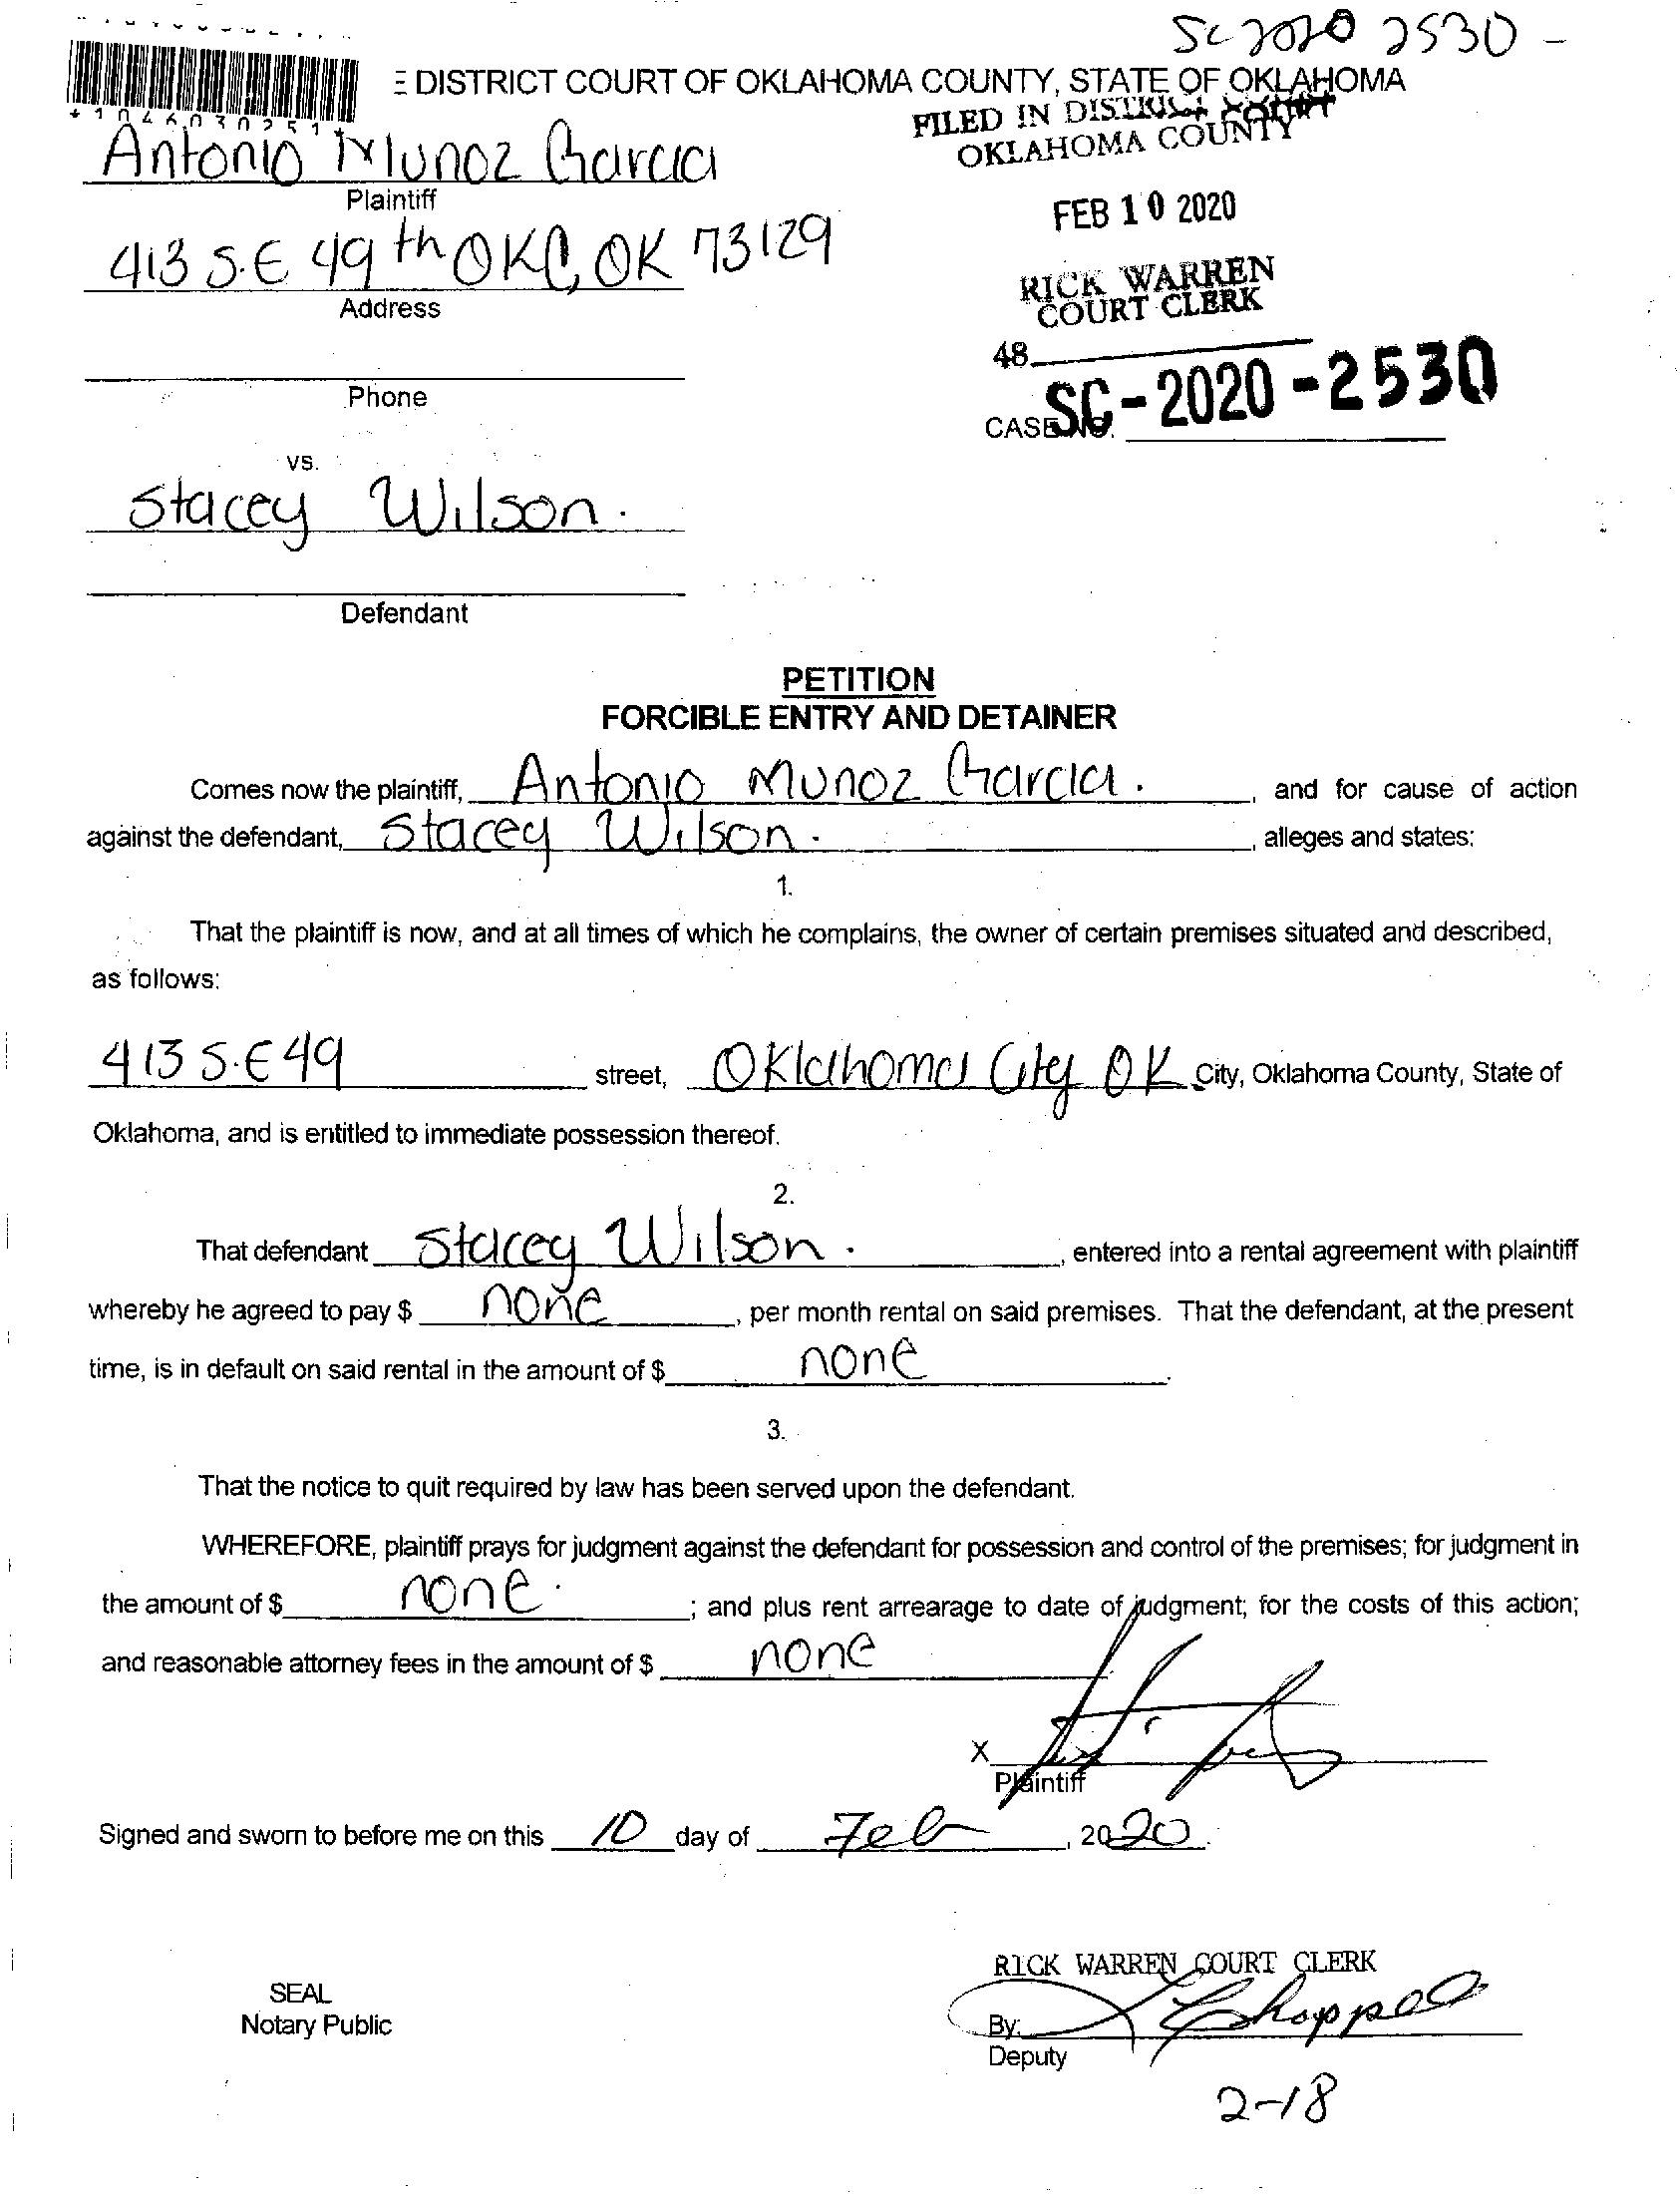 SC 2020 2530 -
E DISTRICT COURT OF OKLAHOMA COUNTY, STATE OF OKLAHOMA
FILED IN DISTRICT COURT
OKLAHOMA COUNTY
*1046030251*
Antonio Munoz Garcia
Plaintiff
FEB 10 2020
413 S.E 49th OKC, OK 73129
Address
RICK WARREN
COURT CLERK
48
Phone
SC-2020-2530
CASE NO.
vs.
Stacey Wilson.
Defendant
PETITION
FORCIBLE ENTRY AND DETAINER
Comes now the plaintiff, Antonio Munoz Garcia. , and for cause of action
against the defendant, Stacey Wilson. , alleges and states:
1.
That the plaintiff is now, and at all times of which he complains, the owner of certain premises situated and described,
as follows:
413 S.E 49 street, Oklahoma City OK City, Oklahoma County, State of
Oklahoma, and is entitled to immediate possession thereof.
2.
That defendant Stacey Wilson. , entered into a rental agreement with plaintiff
whereby he agreed to pay $ none , per month rental on said premises. That the defendant, at the present
time, is in default on said rental in the amount of $ none .
3.
That the notice to quit required by law has been served upon the defendant.
WHEREFORE, plaintiff prays for judgment against the defendant for possession and control of the premises; for judgment in
the amount of $ none. ; and plus rent arrearage to date of judgment; for the costs of this action;
and reasonable attorney fees in the amount of $ none
X
Plaintiff
Signed and sworn to before me on this 10 day of Feb , 2020 .
RICK WARREN COURT CLERK
SEAL
Notary Public
By: Chappell
Deputy
2-18